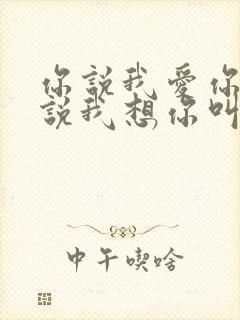 你說我愛你
說我想你叫
中午喫啥